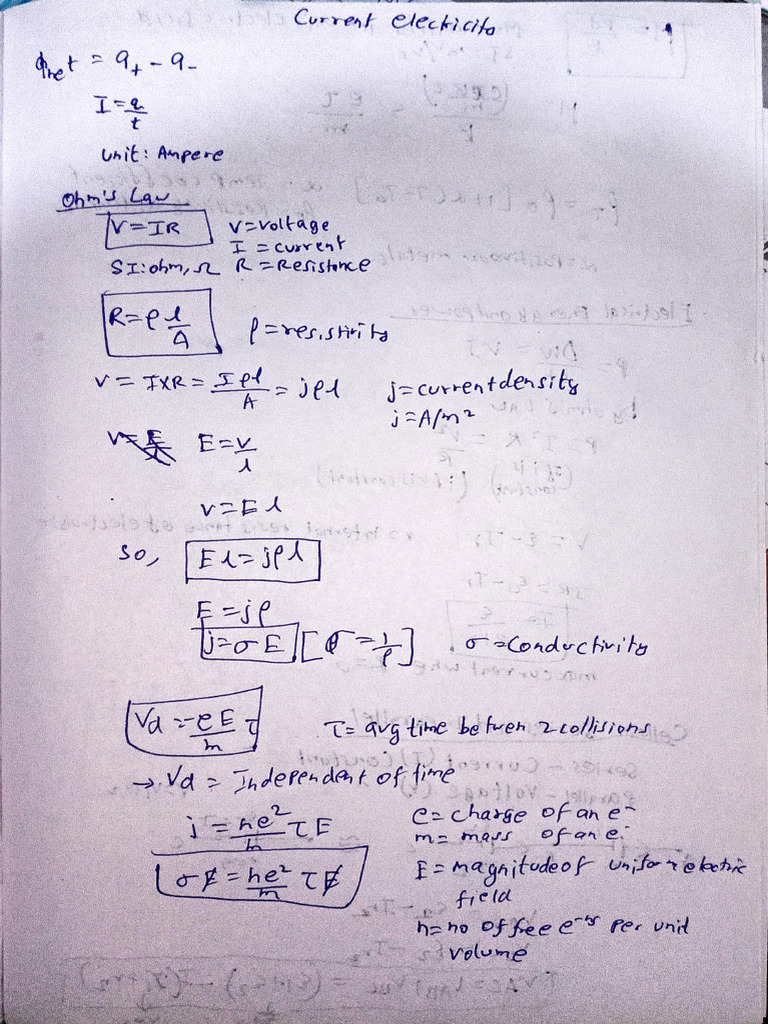 Current electricity
q_net = q₊ - q₋
I = q/t
Unit: Ampere
Ohm's Law
V = IR
V = voltage
I = current
SI: ohm, Ω R = Resistance
R = ρ l/A
ρ = resistivity
V = I×R = Iρl/A = jρl
j = current density
j = A/m²
E = V/l
V = El
So, El = jρl
E = jρ
j = σE [σ = 1/ρ] σ = Conductivity
Vd = -eE/m τ
τ = avg time between 2 collisions
→ Vd = Independent of time
j = ne²/m τE
σE = ne²/m τE
e = charge of an e⁻
m = mass of an e⁻
E = magnitude of uniform electric
field
n = no of free e⁻ⁿˢ per unit
volume